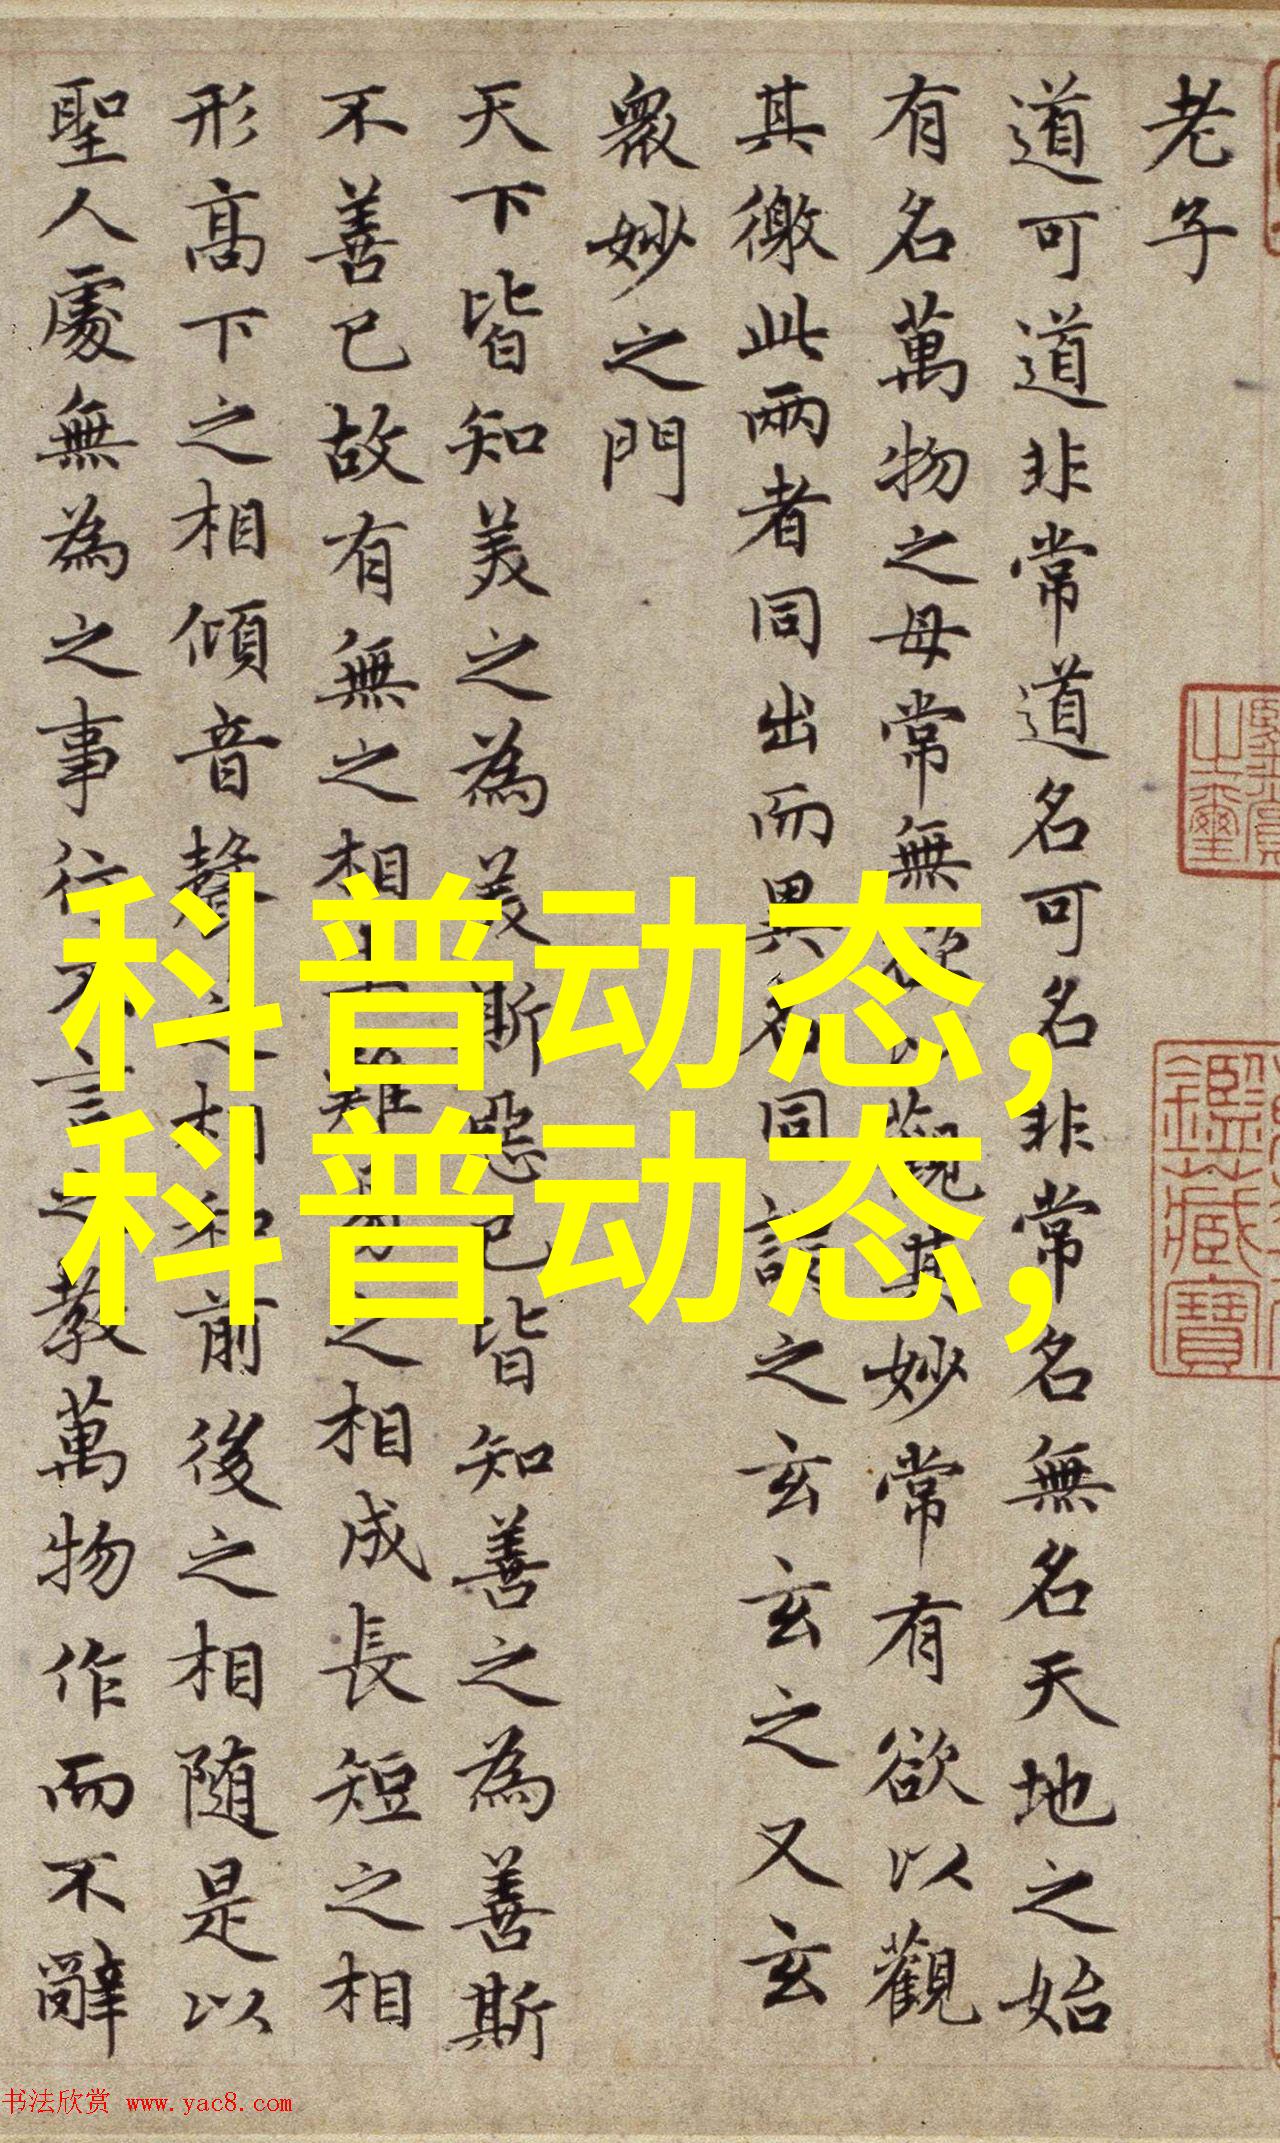 老子
道可道非常道名可名非常名無名天地之始
有名萬物之母常無欲以觀其妙常有欲以觀
其徼此兩者同出而異名同謂之玄玄之又玄
衆妙之門
天下皆知美之為美斯惡已皆知善之為善斯
不善已故有無之相生難易之相成長短之相
形高下之相傾音聲之相和前後之相随是以
聖人處無為之事行不言之教萬物作而不辭
科普动态,
科普动态,
之璽
鑑藏寶
书法欣赏 www.yac8.com